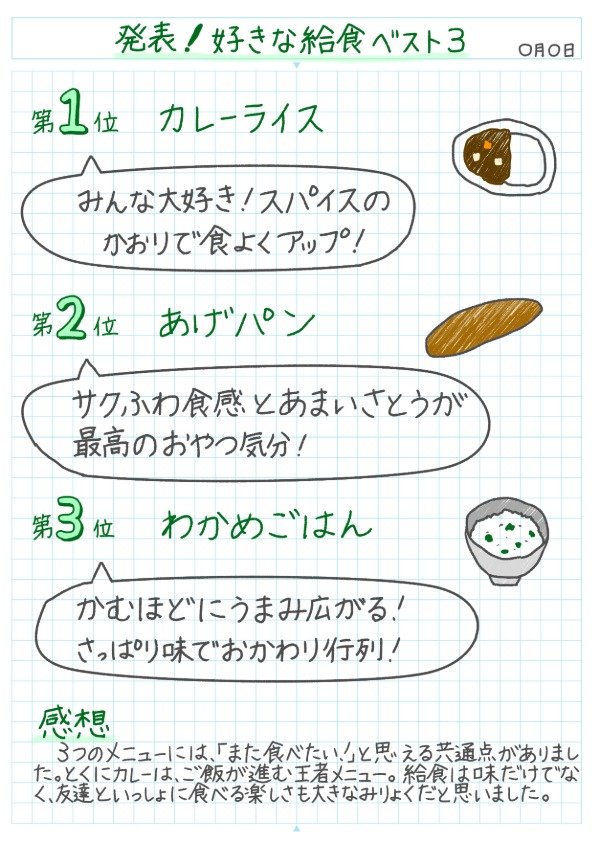 発表!好きな給食ベスト3
〇月〇日
第1位 カレーライス
みんな大好き!スパイスの
かおりで食よくアップ!
第2位 あげパン
サクふわ食感とあまいさとうが
最高のおやつ気分!
第3位 わかめごはん
かむほどにうまみ広がる!
さっぱり味でおかわり行列!
感想
3つのメニューには、「また食べたい!」と思える共通点がありまし
た。とくにカレーは、ご飯が進む王者メニュー。給食は味だけでな
く、友達といっしょに食べる楽しさも大きなみりょくだと思いました。